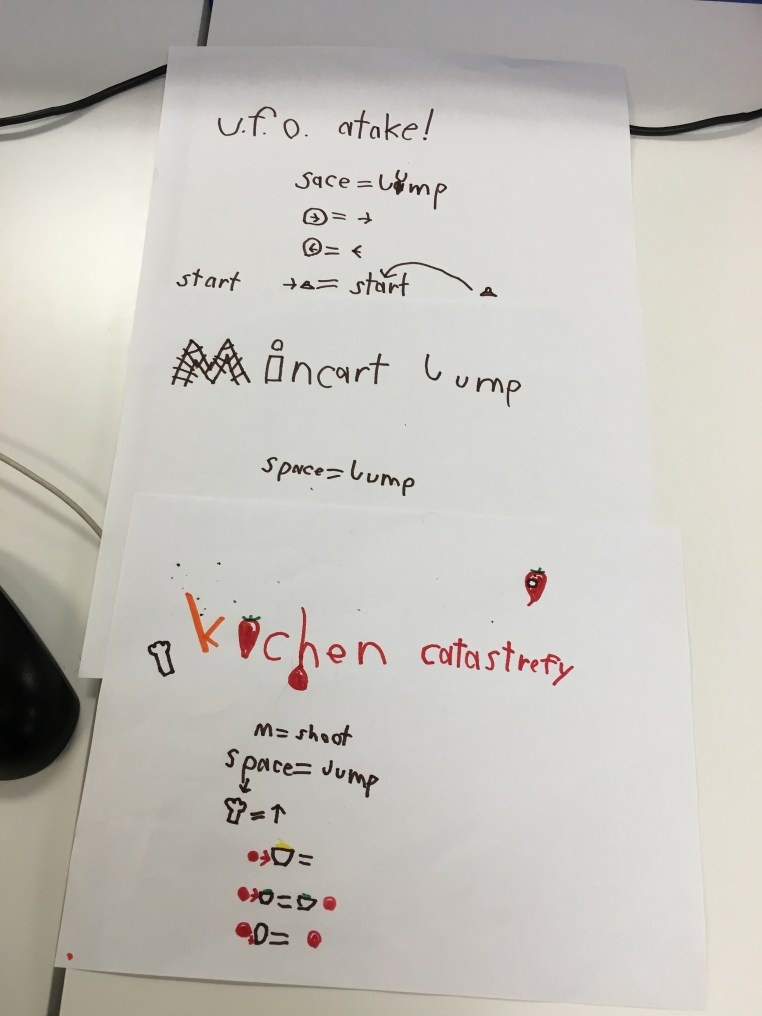 u.f.o. atake!
sace = Jump
→ = →
← = ←
start → = start
Mincart Jump
space = Jump
kichen catastrefy
m = shoot
space = Jump
= ↑
→ =
→ =
=